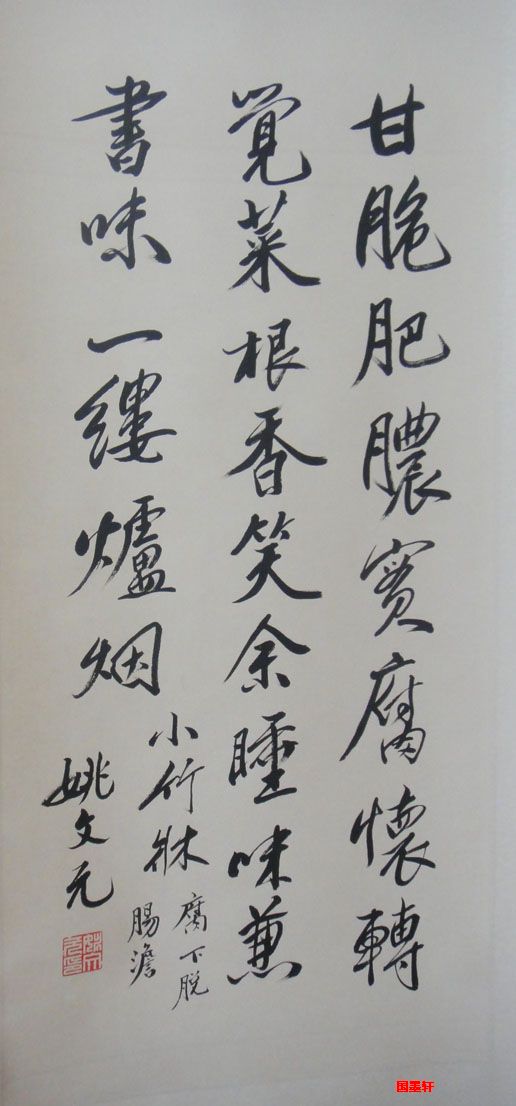 甘脆肥膿實腐懷轉
覺菜根香笑余睡味兼
書味一縷爐烟
小竹牀
腐下脫
腸澹
姚文元
国墨轩